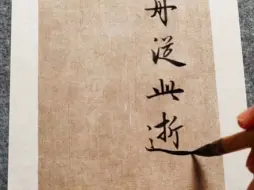 舟從此逝